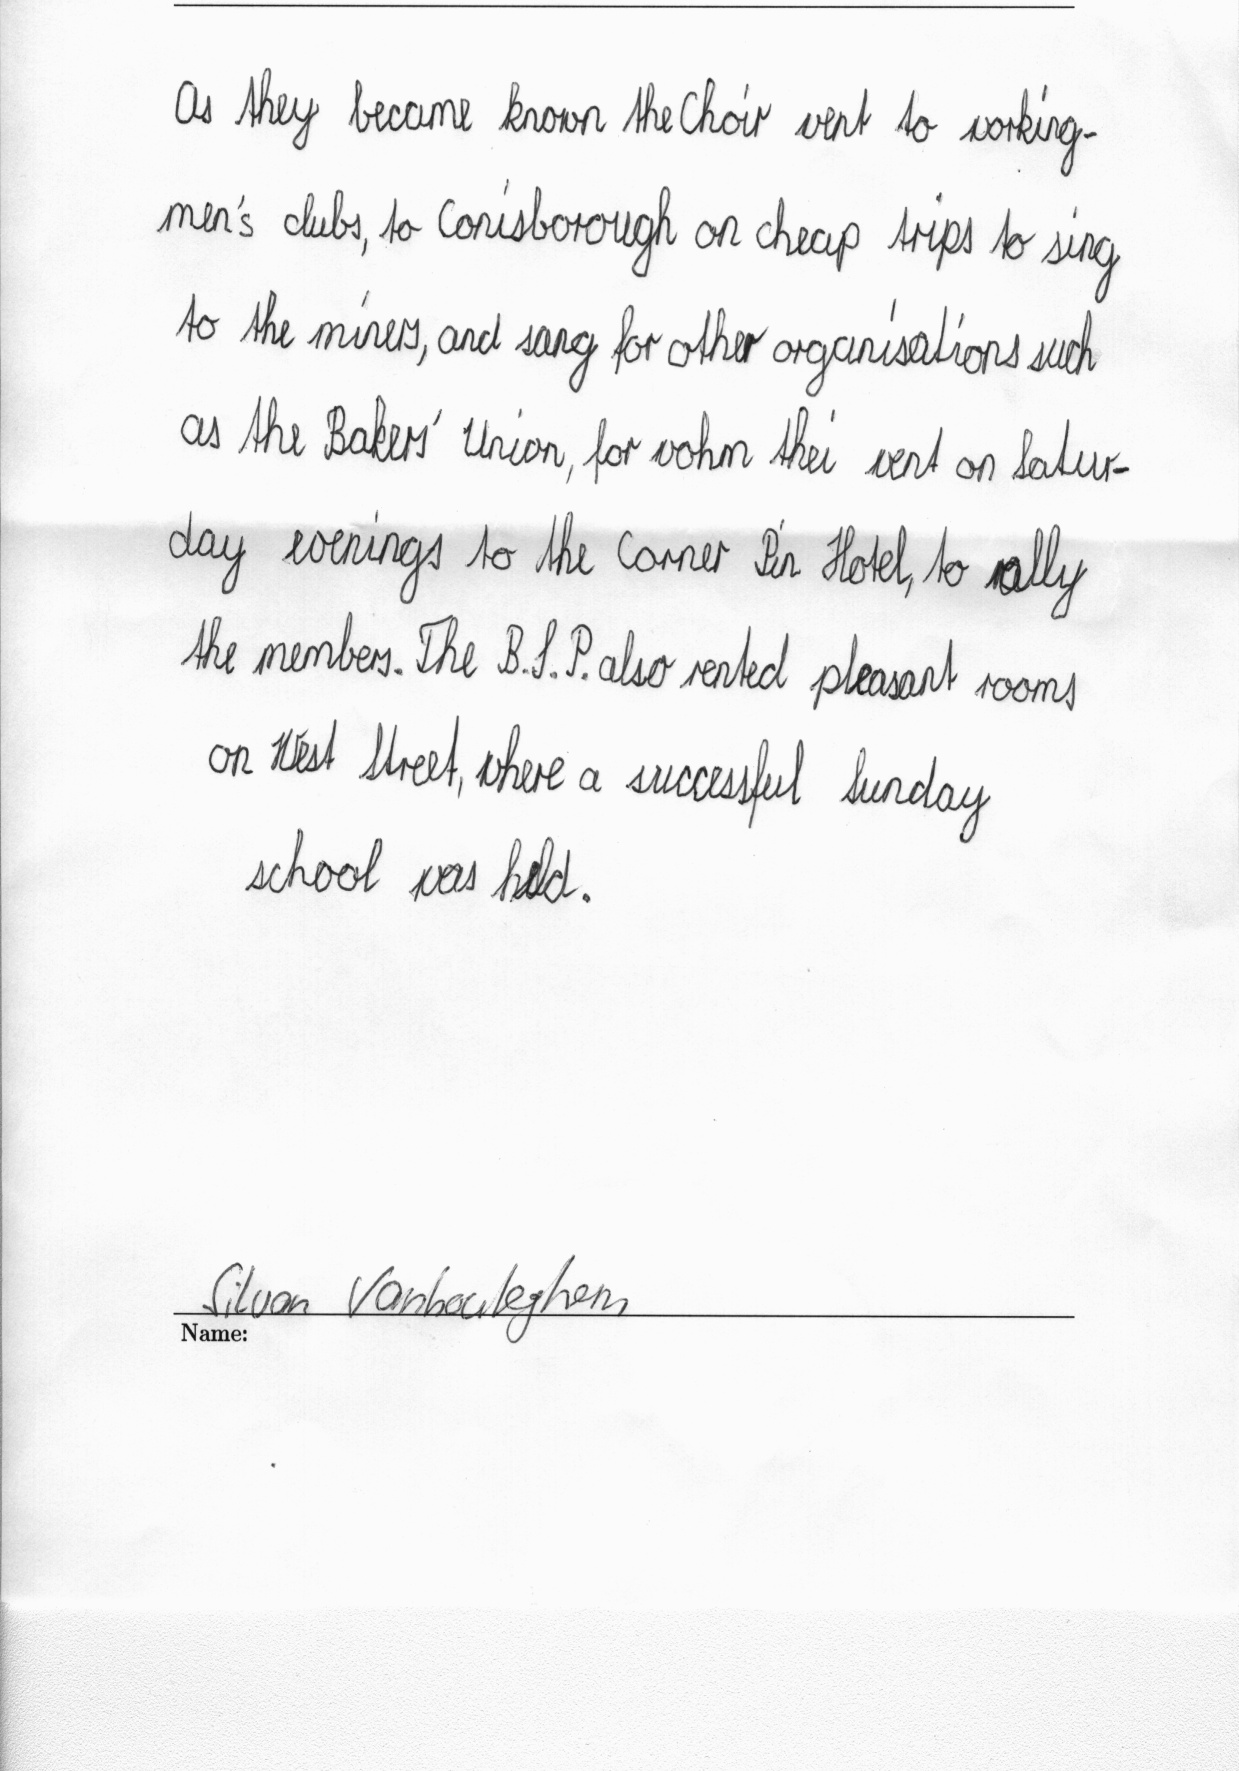 As they became known the Choir went to working-
men's clubs, to Conisborough on cheap trips to sing
to the miners, and sang for other organisations such
as the Bakers' Union, for wohm thei went on Satur-
day evenings to the Corner Pin Hotel, to rally
the members. The B.S.P. also rented pleasant rooms
on West Street, where a successful Sunday
school was held.
Silvan
Name: